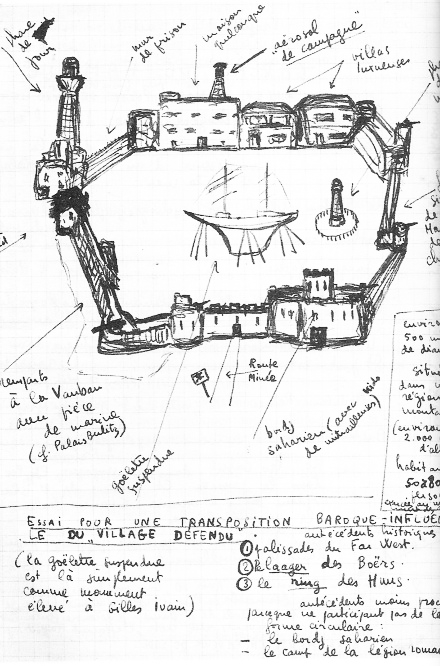 phare de
jour
mur
de prison
maison
quelconque
"aérosol
de campagne"
villas
luxueuses
remparts
à la Vauban
avec pièce
de marine
goëlette
suspendue
Route
Minée
bordj
saharien (avec nids
de mitrailleuses)
environ
500 m
de dia
située
dans
région
monta
(environ
2.000
d'al
habitan
50 à 80
ESSAI POUR UNE TRANSPOSITION BAROQUE-INFLUE
LE DU "VILLAGE DÉFENDU".
(la goëlette suspendue
est là simplement
comme monument
élevé à Gilles Ivain)
antécédents historiques
① palissades du Far West.
② klaager des Boërs.
③ le ring des Huns.
antécédents moins proc
parce que ne participant pas de le
forme circulaire :
- le bordj saharien
- le camp de la légion romai